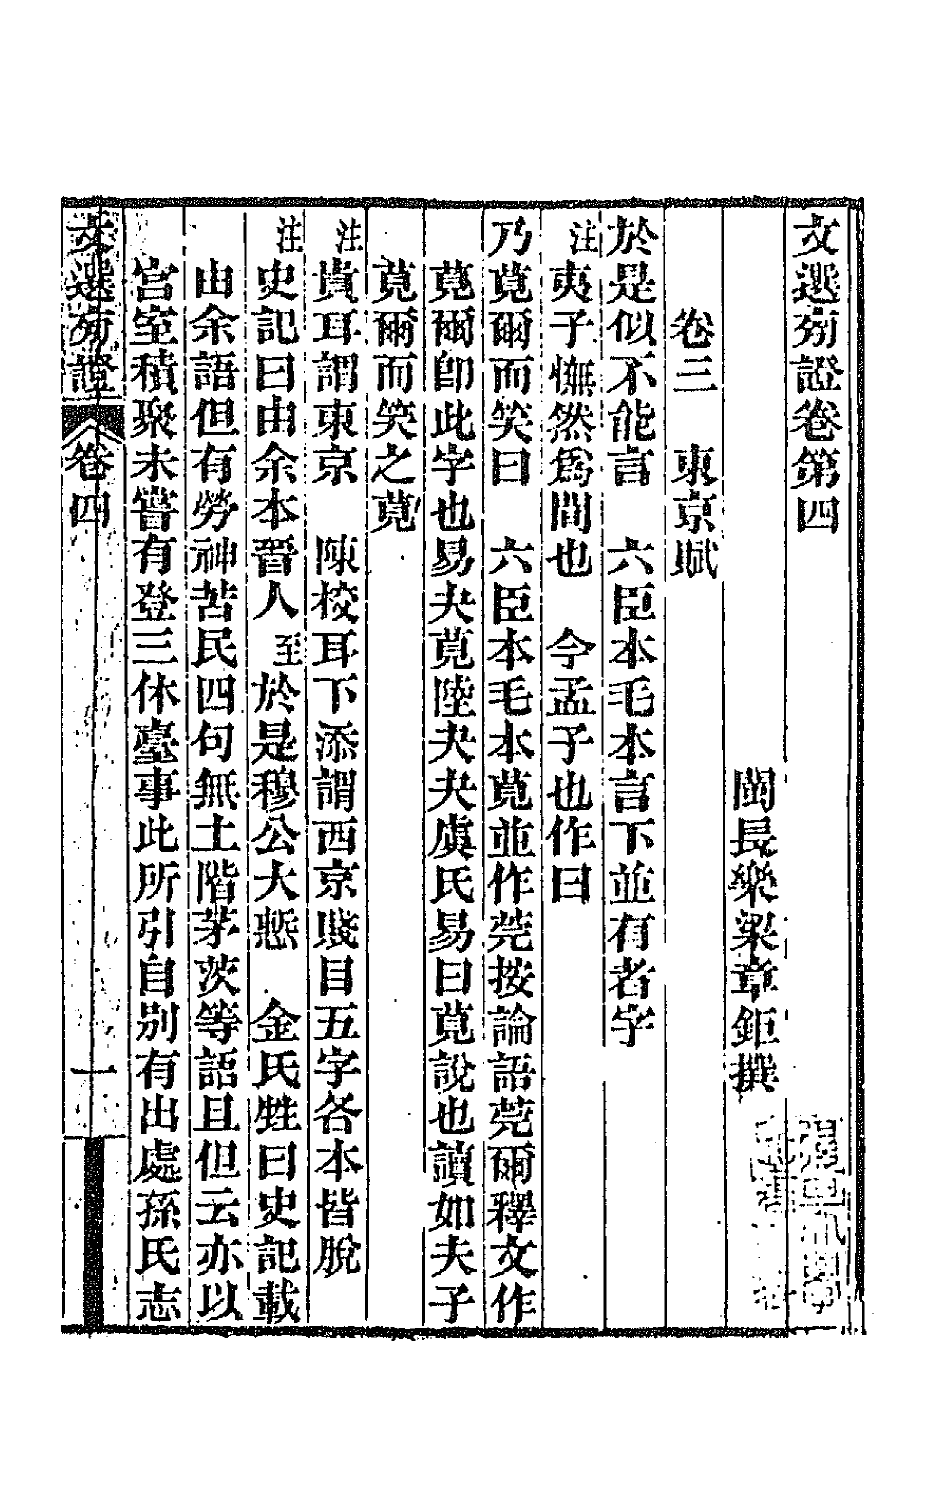 文選旁證卷第四
閩長樂梁章鉅撰
卷三　東京賦
於是似不能言　六臣本毛本言下並有者字
注夷子憮然爲間也　今孟子也作曰
乃莧爾而笑曰　六臣本毛本莧並作莞按論語莞爾釋文作
莧爾卽此字也易夬莧陸夬夬虞氏易曰莧說也讀如夫子
莧爾而笑之莧
注貴耳謂東京　陳校耳下添謂西京賤目五字各本皆脫
注史記曰由余本晉人至於是穆公大慙　金氏甡曰史記載
由余語但有勞神苦民四句無土階茅茨等語且但云亦以
宮室積聚未嘗有登三休臺事此所引自別有出處孫氏志
文選旁證
卷四
一